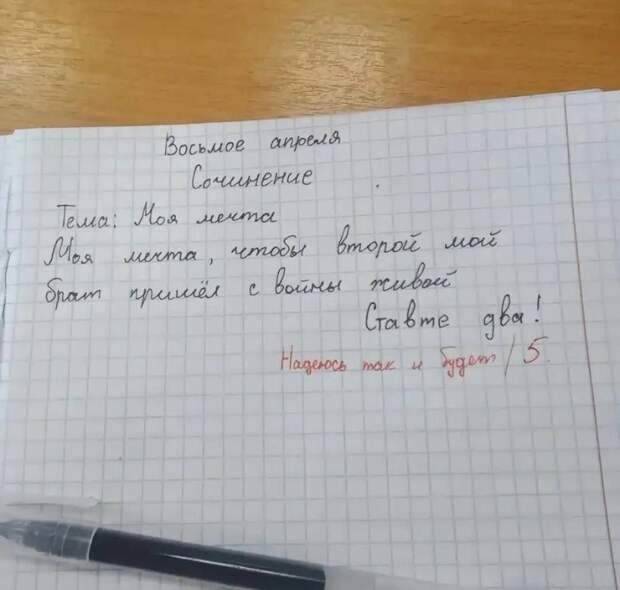 Восьмое апреля
Сочинение
Тема: Моя мечта
Моя мечта, чтобы второй мой
брат пришёл с войны живой
Ставте два!
Надеюсь так и будет / 5.